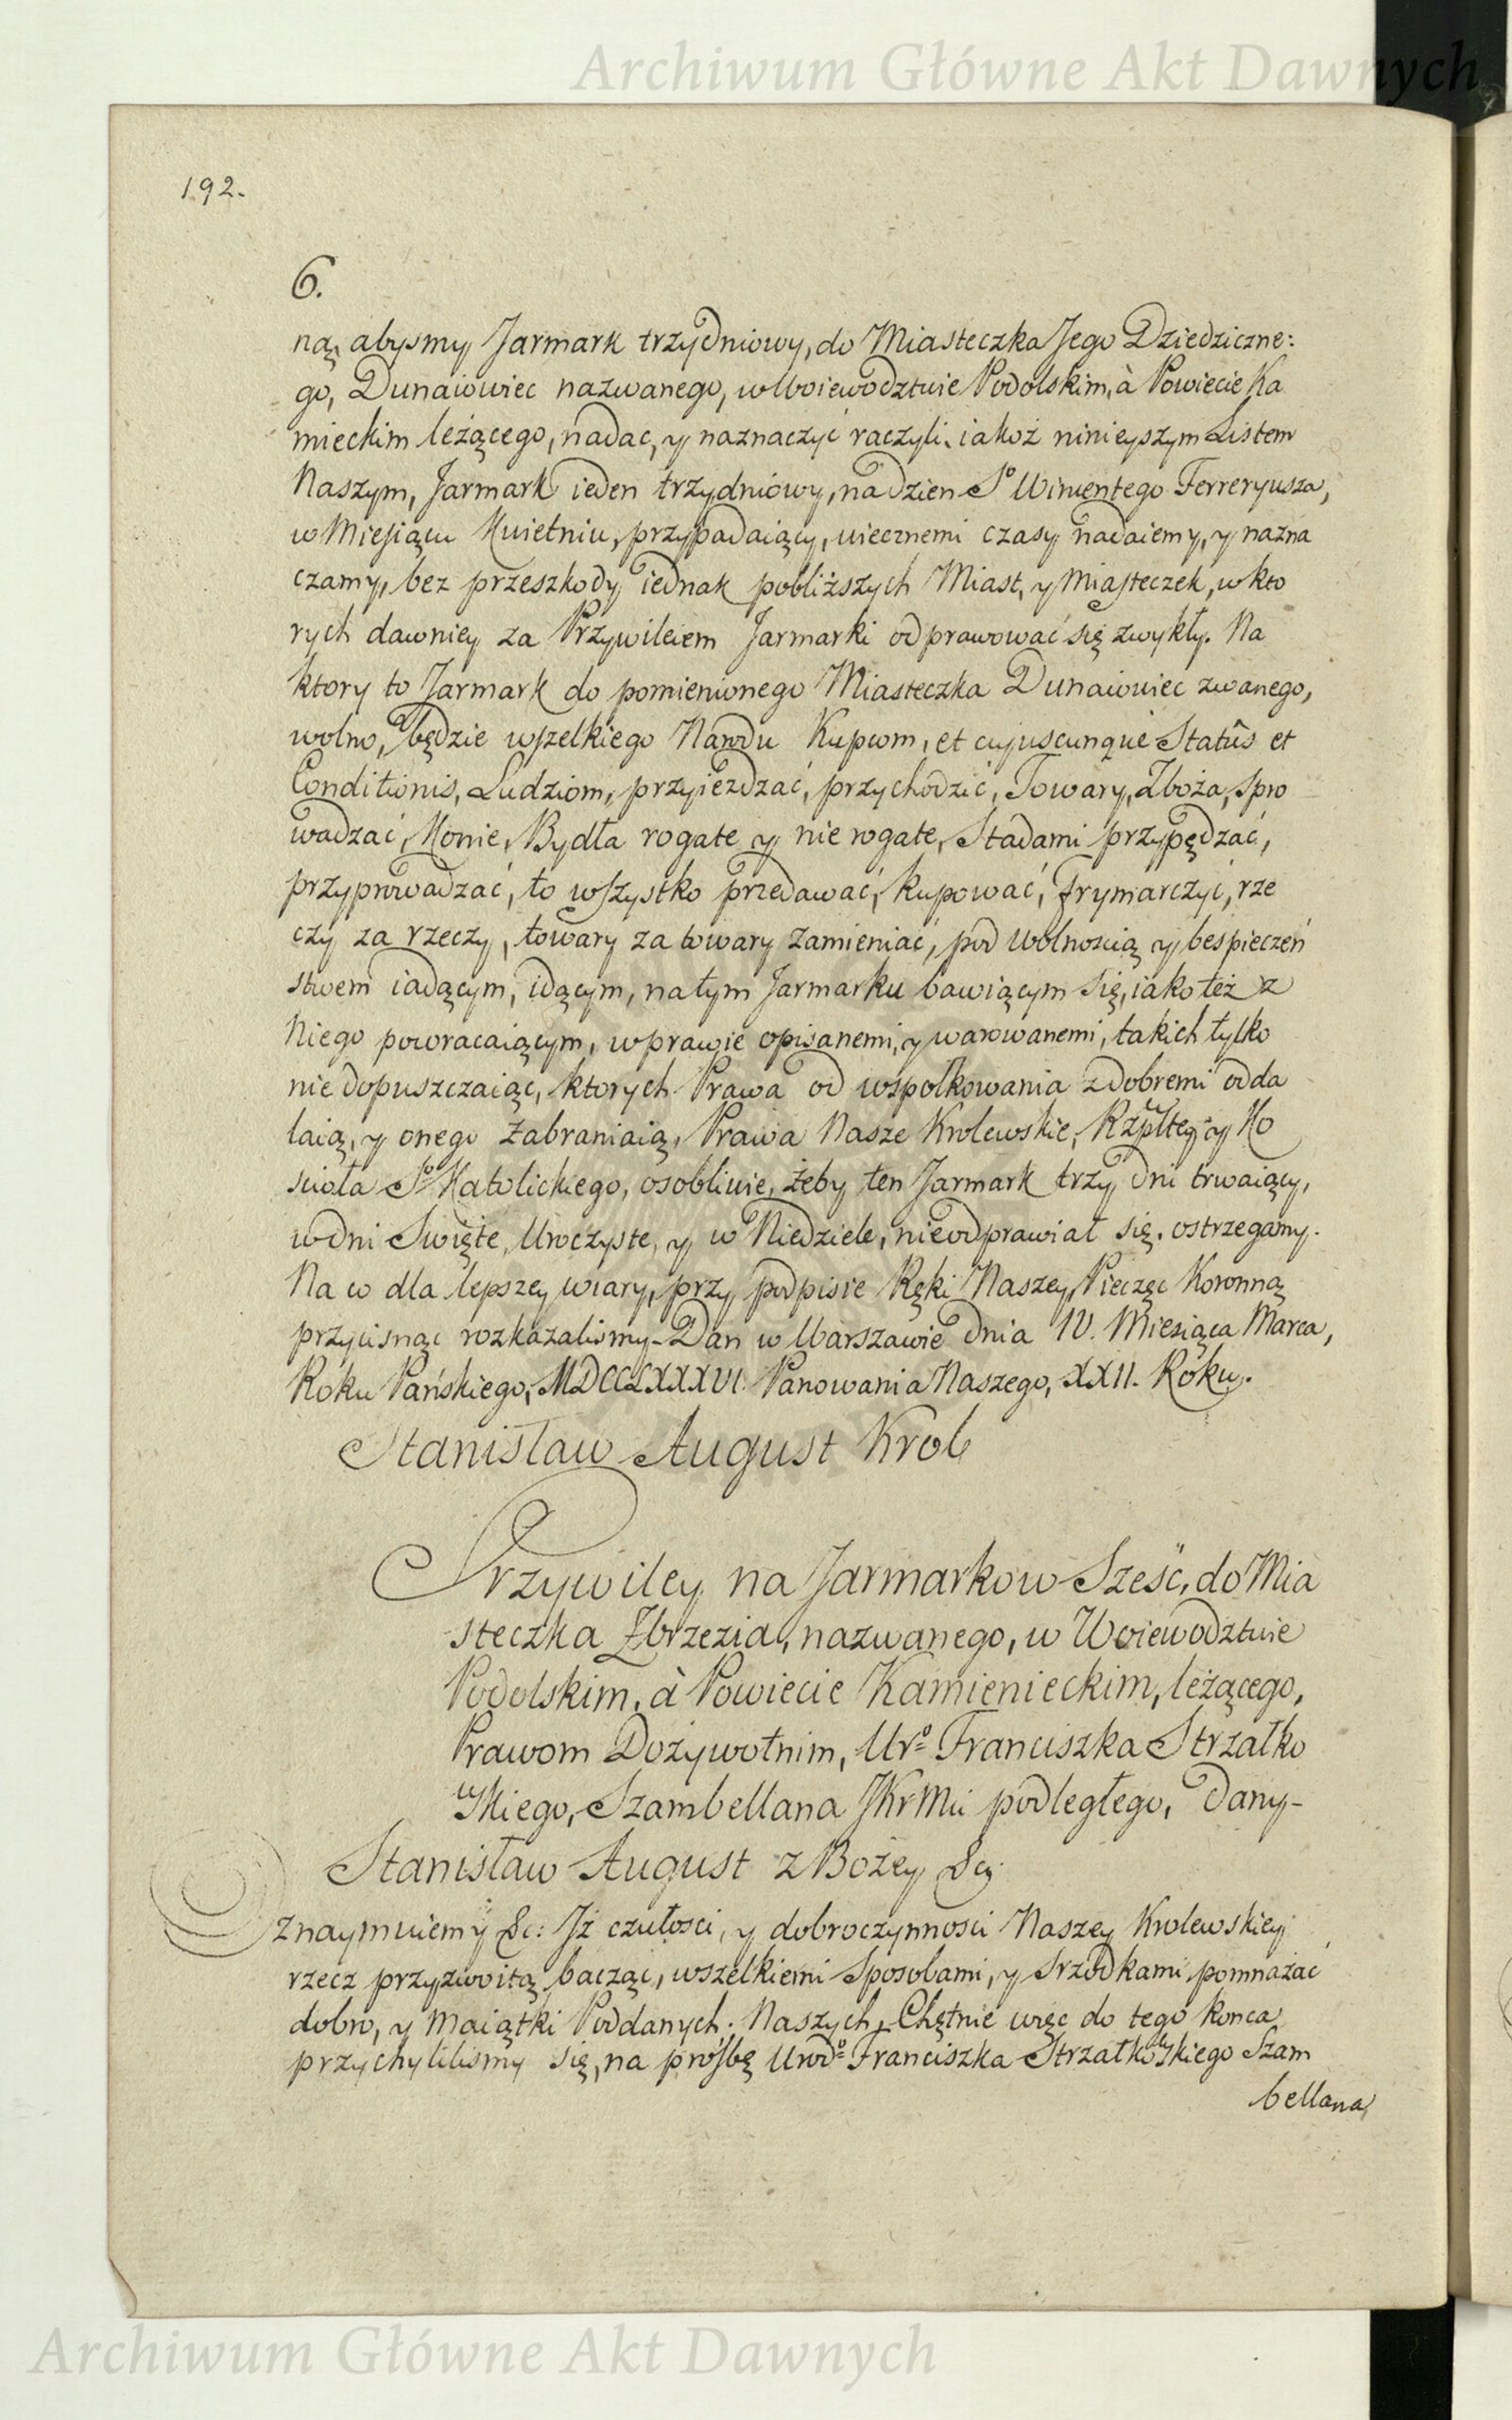 Archiwum Główne Akt Dawnych
192.
6.
ną, abysmy Jarmark trzydniowy, do Miasteczka Jego Dziedziczne:
go, Dunaiowiec nazwanego, w Woiewodztwie Podolskim, à Powiecie Ka
mieckim leżącego, nadac, y naznaczyć raczyli, iakoż ninieyszym Listem
Naszym, Jarmark ieden trzydniowy, na dzien Sº Wincentego Ferreryusza,
w Miesiącu Kwietniu, przypadaiący, wiecznemi czasy nadaiemy, y nazna
czamy, bez przeszkody iednak pobliższych Miast, y Miasteczek, w kto
rych dawniey za Przywileiem Jarmarki odprawować się zwykły. Na
ktory to Jarmark do pomienionego Miasteczka Dunaiowiec zwanego,
wolno, będzie wszelkiego Narodu Kupcom, et cujuscunque Statûs et
Conditionis, Ludziom, przyiezdzać, przychodzić, Towary, Zboża, spro
wadzać, Konie, Bydła rogate y nie rogate, Stadami przypędzać,
przyprowadzać, to wszystko przedawać, kupować, frymarczyć, rze
czy za rzeczy, towary za towary zamieniać, pod wolnoscią y bespieczeń
stwem iadącym, idącym, na tym Jarmarku bawiącym się, iako też z
Niego powracaiącym, w prawie opisanemi, y warowanemi, takich tylko
nie dopuszczaiąc, ktorych Prawa od wspołkowania z dobremi odda
laią, y onego zabraniaią, Prawa Nasze Krolewskie, Rzpltey y Ko
scioła Sº Katolickiego, osobliwie, żeby ten Jarmark trzy dni trwaiący,
w dni Swięte, Uroczyste, y w Niedziele, nieodprawiał się, ostrzegamy.
Na co dla lepszey wiary, przy podpisie Ręki Naszey, Pieczęc Koronną
przycisnąc rozkazalismy - Dan w Warszawie dnia IV. Miesiąca Marca,
Roku Pańskiego, MDCCLXXXVI. Panowania Naszego, XXII. Roku.
Stanisław August Krol
Przywiley na Jarmarkow Sześć, do Mia
steczka Zbrzezia, nazwanego, w Woiewodztwie
Podolskim, à Powiecie Kamienieckim, leżącego,
Prawom Dożywotnim, Urº Franciszka Strzałko
wskiego, Szambellana JKrMci podległego, dany -
Stanisław August z Bożey &c.
Oznaymuiemy &c: Jż czułosci, y dobroczynnosci Naszey Krolewskiey
rzecz przyzwoitą bacząc, wszelkiemi Sposobami, y srzodkami pomnażać
dobro, y Maiątki Poddanych Naszych, Chętnie więc do tego konca
przychylilismy się, na prośbę Urodº Franciszka Strzałkowskiego Szam
bellana
Archiwum Główne Akt Dawnych